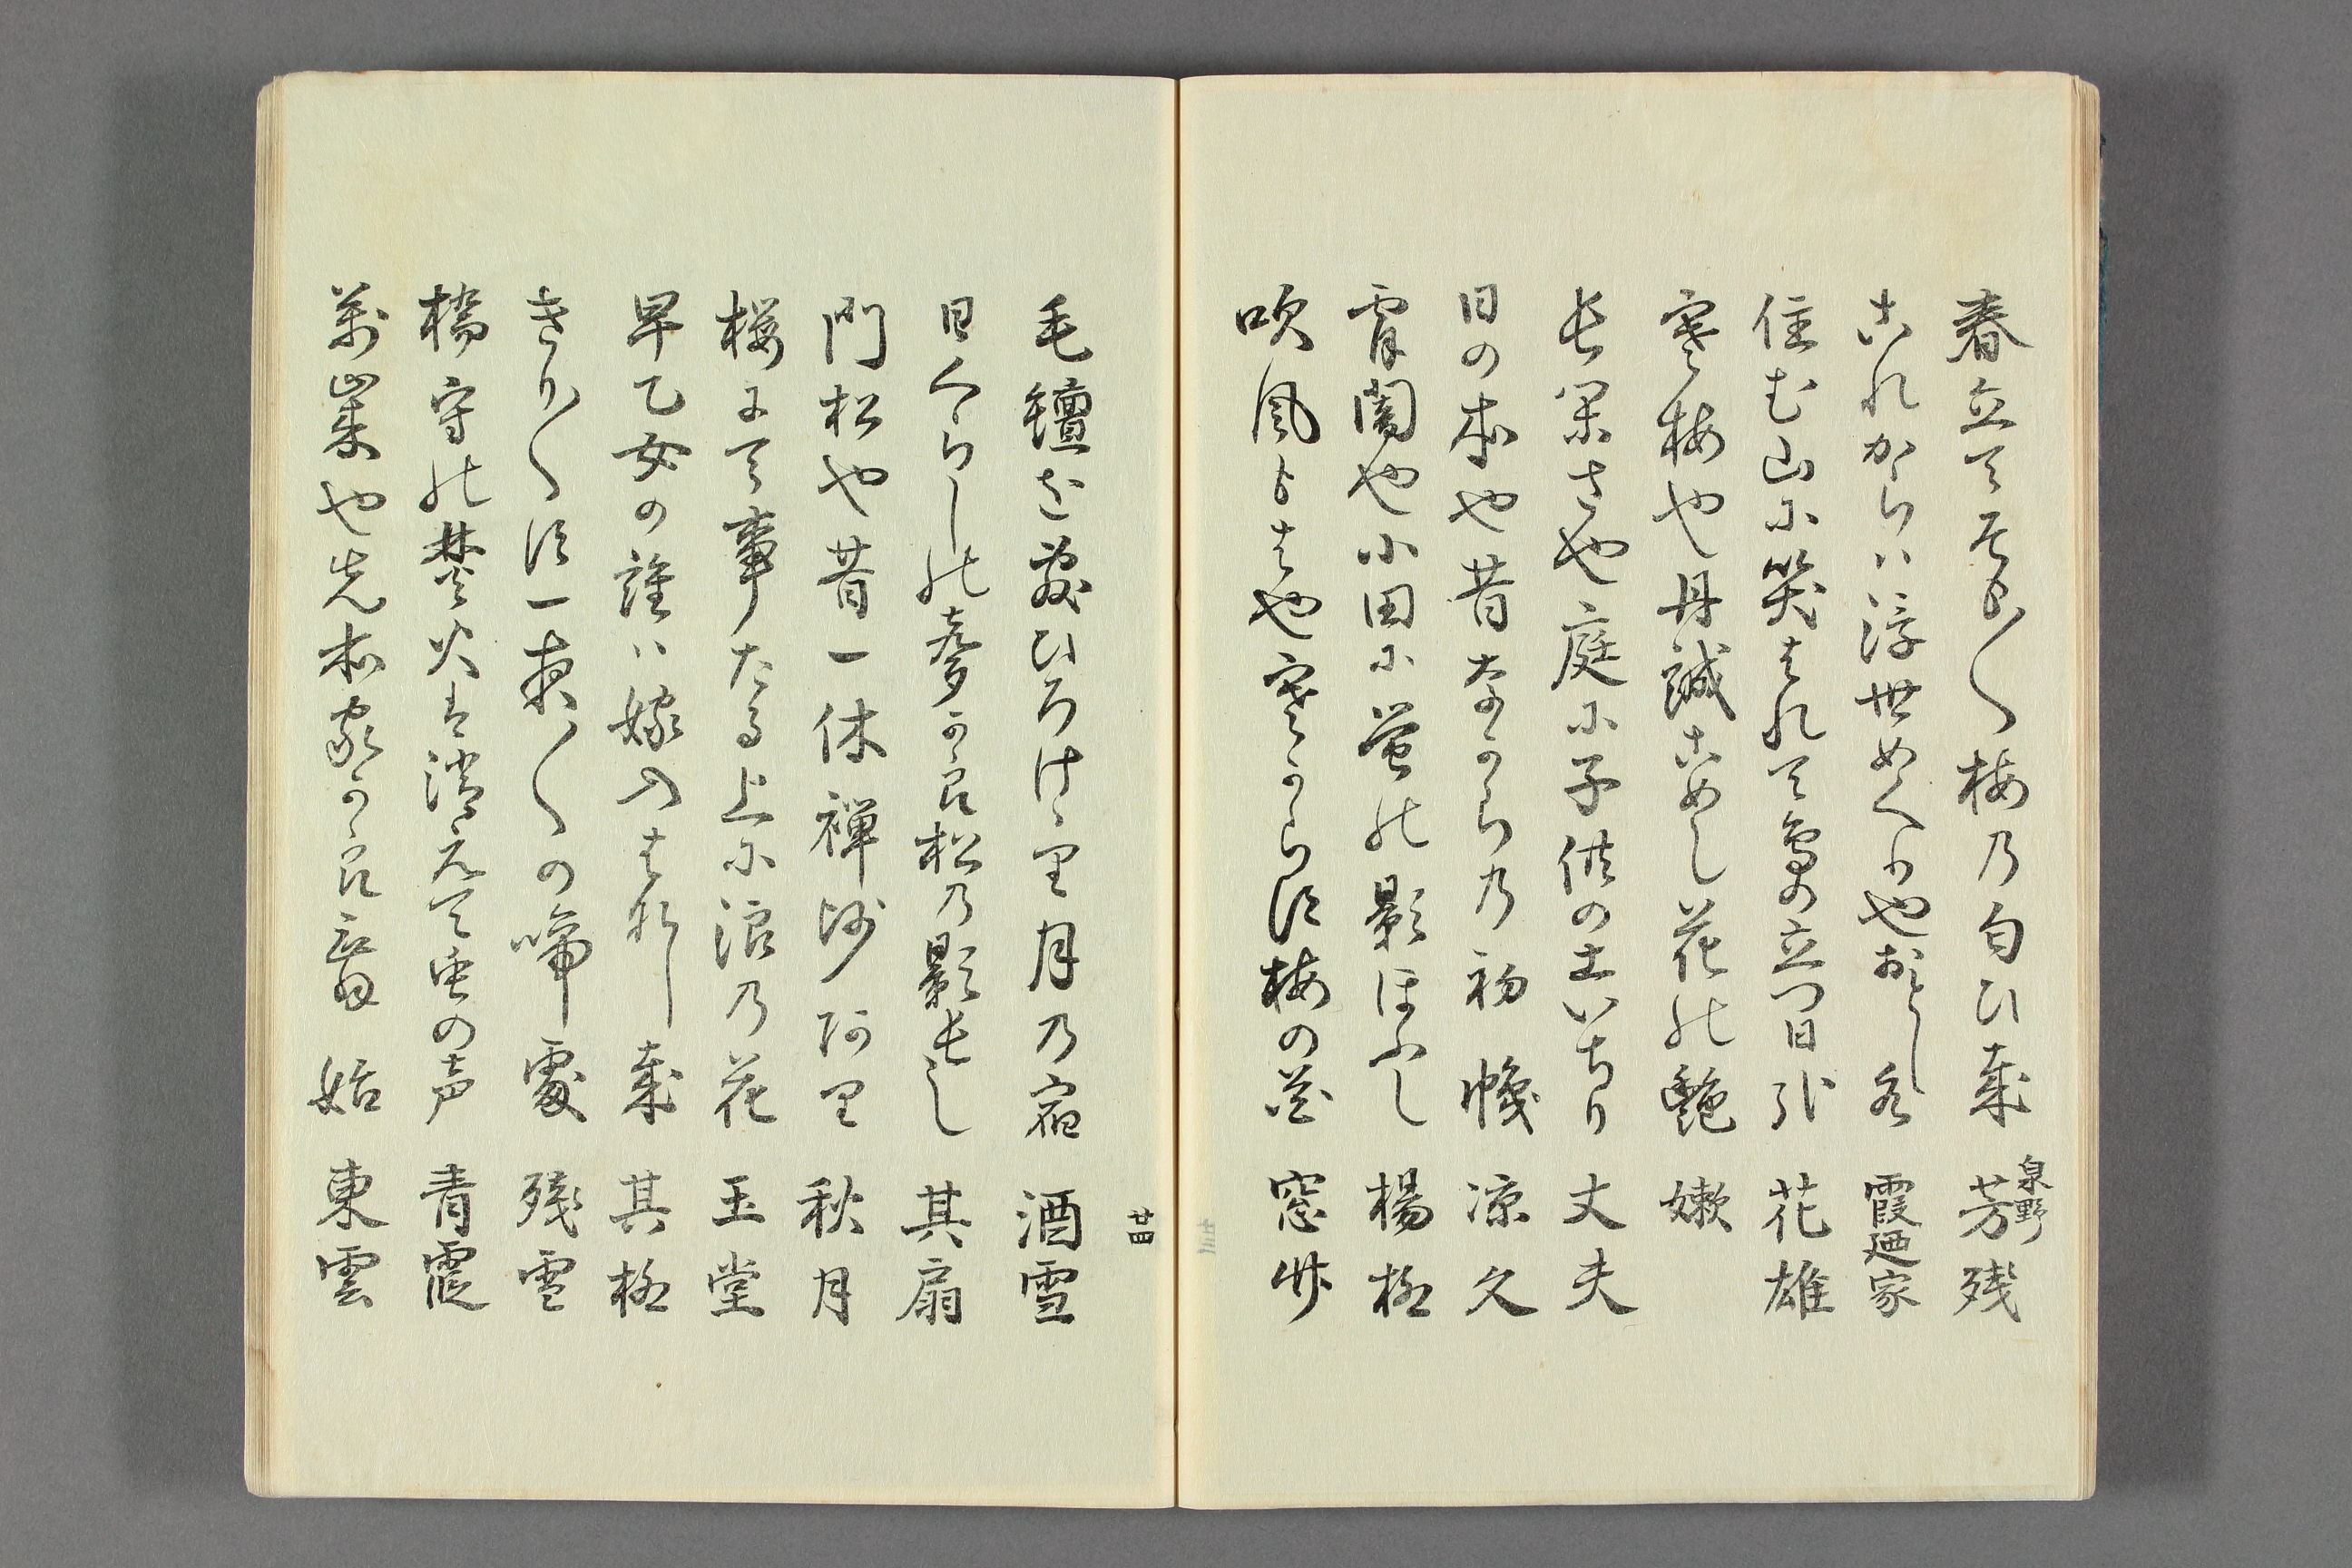 春立てそも〳〵梅乃匂ひ哉 泉野 芳残
これからハ浮世めくなりやおとし水 霞廼家
住む山に笑はれて鳥の立つ日かな 花雄
寒梅や丹誠こめし花の艶 嫩
長閑さや庭に子供の土いちり 丈夫
日の本や昔なからの初幟 凉久
宵闇や小田に蛍の影ほふし 楊柳
吹風もはや寒からす梅の花 窓竹
廿四
毛氈を敷ひろけけり月乃宿 酒雪
日くらしの声から松乃影長し 其扇
門松や昔一休禅沙阿り 秋月
桜にて事たる上に浪乃花 玉堂
早乙女の誰ハ嫁入はなし哉 其柳
きり〳〵す一夜〳〵の啼処 残雪
橋守の焚火は消えて虫の声 青霞
万歳や先本家から言習始 東雲